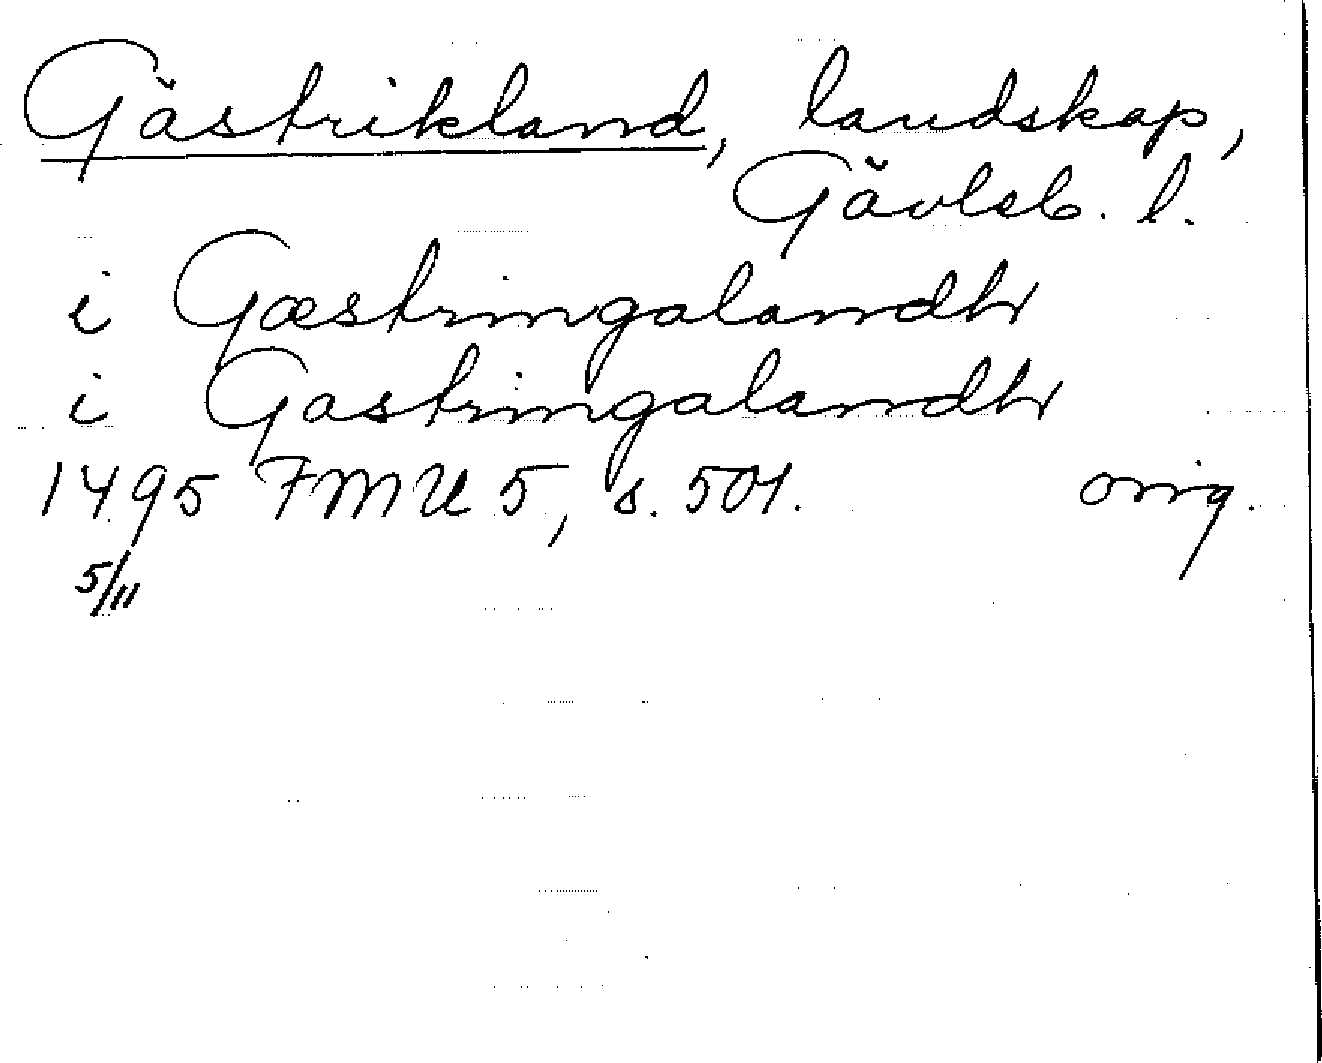 Gästrikland, landskap,
Gävleb. l.
i Gæstringalandh
i Gastringalandh
1495 FMU 5, s. 501. orig.
5/11